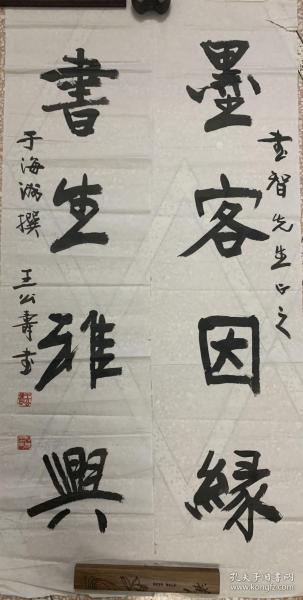 書智先生正之
墨客因緣
書生雅興
于海湖撰 王公壽書
孔夫子旧书网